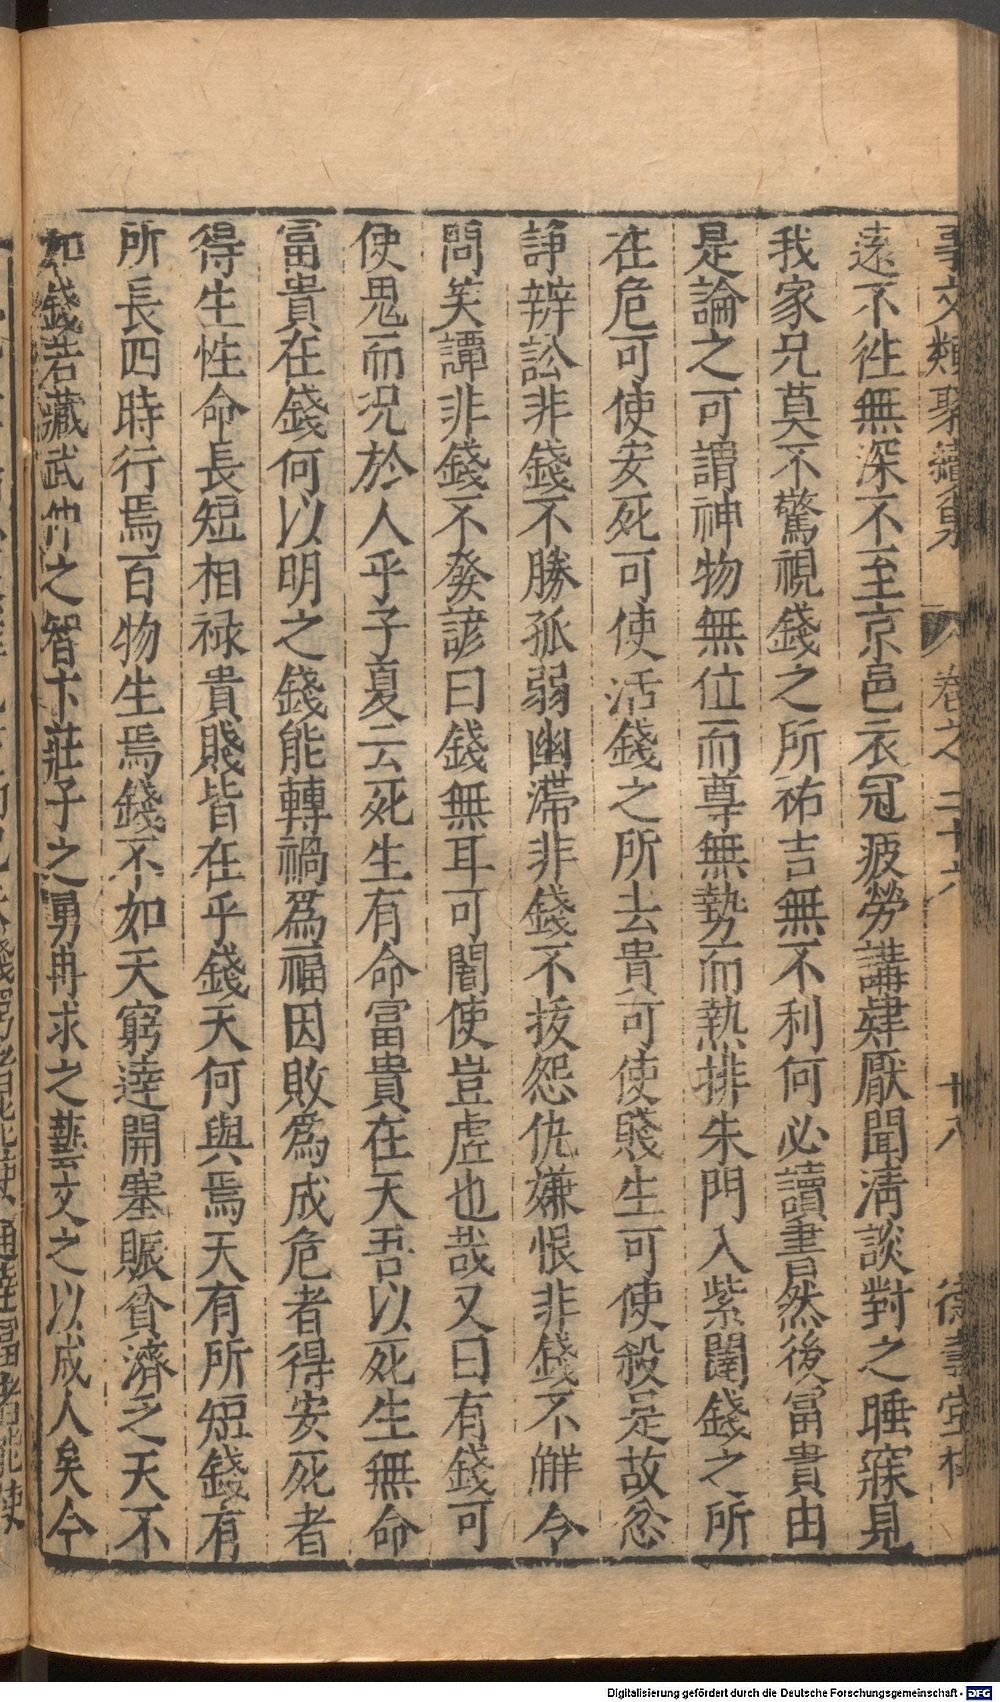 事文類聚續集 卷之二十六 廿八 德壽堂梓
遠不徃無深不至京邑衣冠疲勞講肄厭聞淸談對之睡寐見
我家兄莫不驚視錢之所祐吉無不利何必讀書然後冨貴由
是論之可謂神物無位而尊無勢而熱排朱門入紫闥錢之所
在危可使安死可使活錢之所去貴可使賤生可使殺是故忿
諍辨訟非錢不勝孤弱幽滯非錢不拔怨仇嫌恨非錢不觧令
問笑譚非錢不發諺曰錢無耳可闇使豈虛也哉又曰有錢可
使鬼而况於人乎子夏云死生有命冨貴在天吾以死生無命
冨貴在錢何以明之錢能轉禍爲福因敗爲成危者得安死者
得生性命長短相禄貴賤皆在乎錢天何與焉天有所短錢有
所長四時行焉百物生焉錢不如天窮逹開塞賑貧濟乏天不
如錢若藏武仲之智卞莊子之勇冉求之藝文之以成人矣今